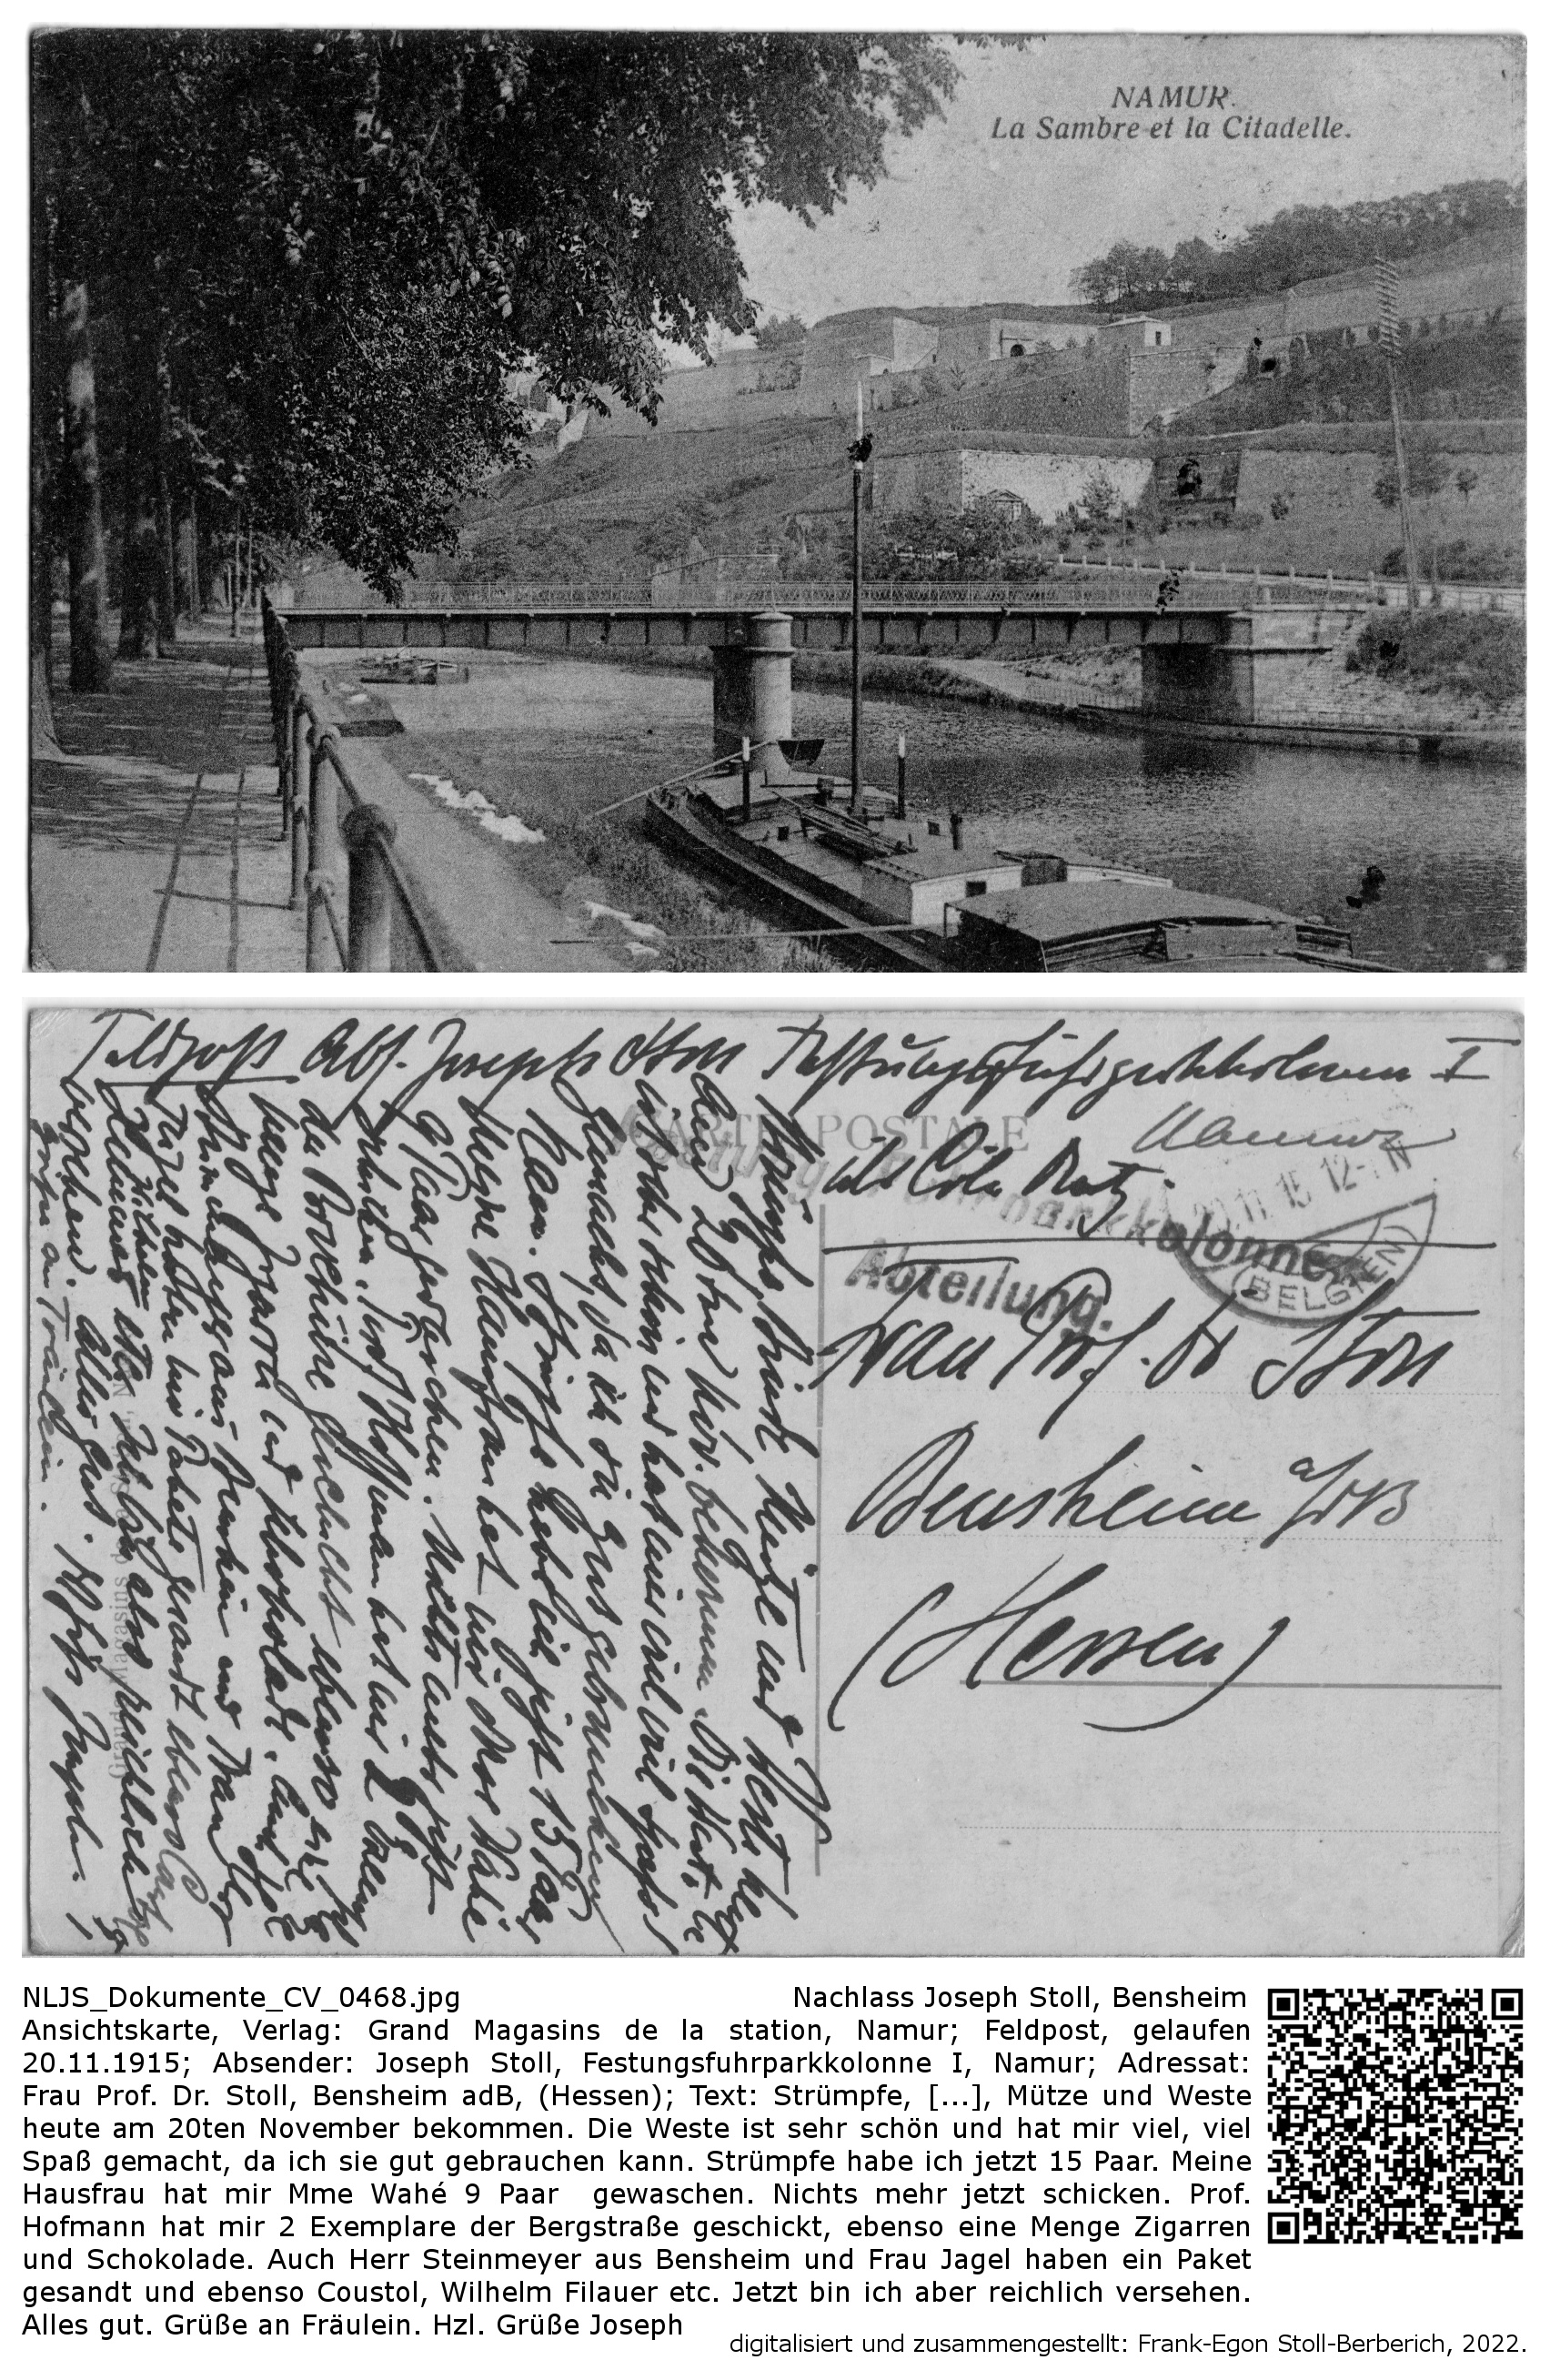 NAMUR.
La Sambre et la Citadelle.
Feldpost Abs. Joseph Stoll Festungsfuhrparkkolonne I
Namur
CARTE POSTALE
20.11.15 12-1 N
(BELGIEN)
Abteilung.
Frau Prof. Dr Stoll
Bensheim a/dB
(Hessen)
Strümpfe, Mütze und Weste heute
am 20ten Nov. bekommen. Die Weste ist
sehr schön und hat mir viel, viel Spaß
gemacht, da ich sie gut gebrauchen
kann. Strümpfe habe ich jetzt 15 Paar
Meine Hausfrau hat mir Mme Wahé
9 Paar gewaschen. Nichts mehr jetzt
schicken. Prof. Hofmann hat mir 2 Exempl.
der Bergstraße geschickt ebenso eine
Menge Zigarren und Schokolade. Auch Herr
Steinmeyer aus Bensheim und Frau
Jagel haben ein Paket gesandt ebenso
etc. Jetzt bin ich aber reichlich
versehen. Alles gut. Hzl. Grüße Joseph.
Grüße an Fräulein.
Grand Magasins de la Station, Namur
NLJS_Dokumente_CV_0468.jpg
Nachlass Joseph Stoll, Bensheim
Ansichtskarte, Verlag: Grand Magasins de la station, Namur; Feldpost, gelaufen
20.11.1915; Absender: Joseph Stoll, Festungsfuhrparkkolonne I, Namur; Adressat:
Frau Prof. Dr. Stoll, Bensheim adB, (Hessen); Text: Strümpfe, [...], Mütze und Weste
heute am 20ten November bekommen. Die Weste ist sehr schön und hat mir viel, viel
Spaß gemacht, da ich sie gut gebrauchen kann. Strümpfe habe ich jetzt 15 Paar. Meine
Hausfrau hat mir Mme Wahé 9 Paar gewaschen. Nichts mehr jetzt schicken. Prof.
Hofmann hat mir 2 Exemplare der Bergstraße geschickt, ebenso eine Menge Zigarren
und Schokolade. Auch Herr Steinmeyer aus Bensheim und Frau Jagel haben ein Paket
gesandt und ebenso Coustol, Wilhelm Filauer etc. Jetzt bin ich aber reichlich versehen.
Alles gut. Grüße an Fräulein. Hzl. Grüße Joseph
digitalisiert und zusammengestellt: Frank-Egon Stoll-Berberich, 2022.